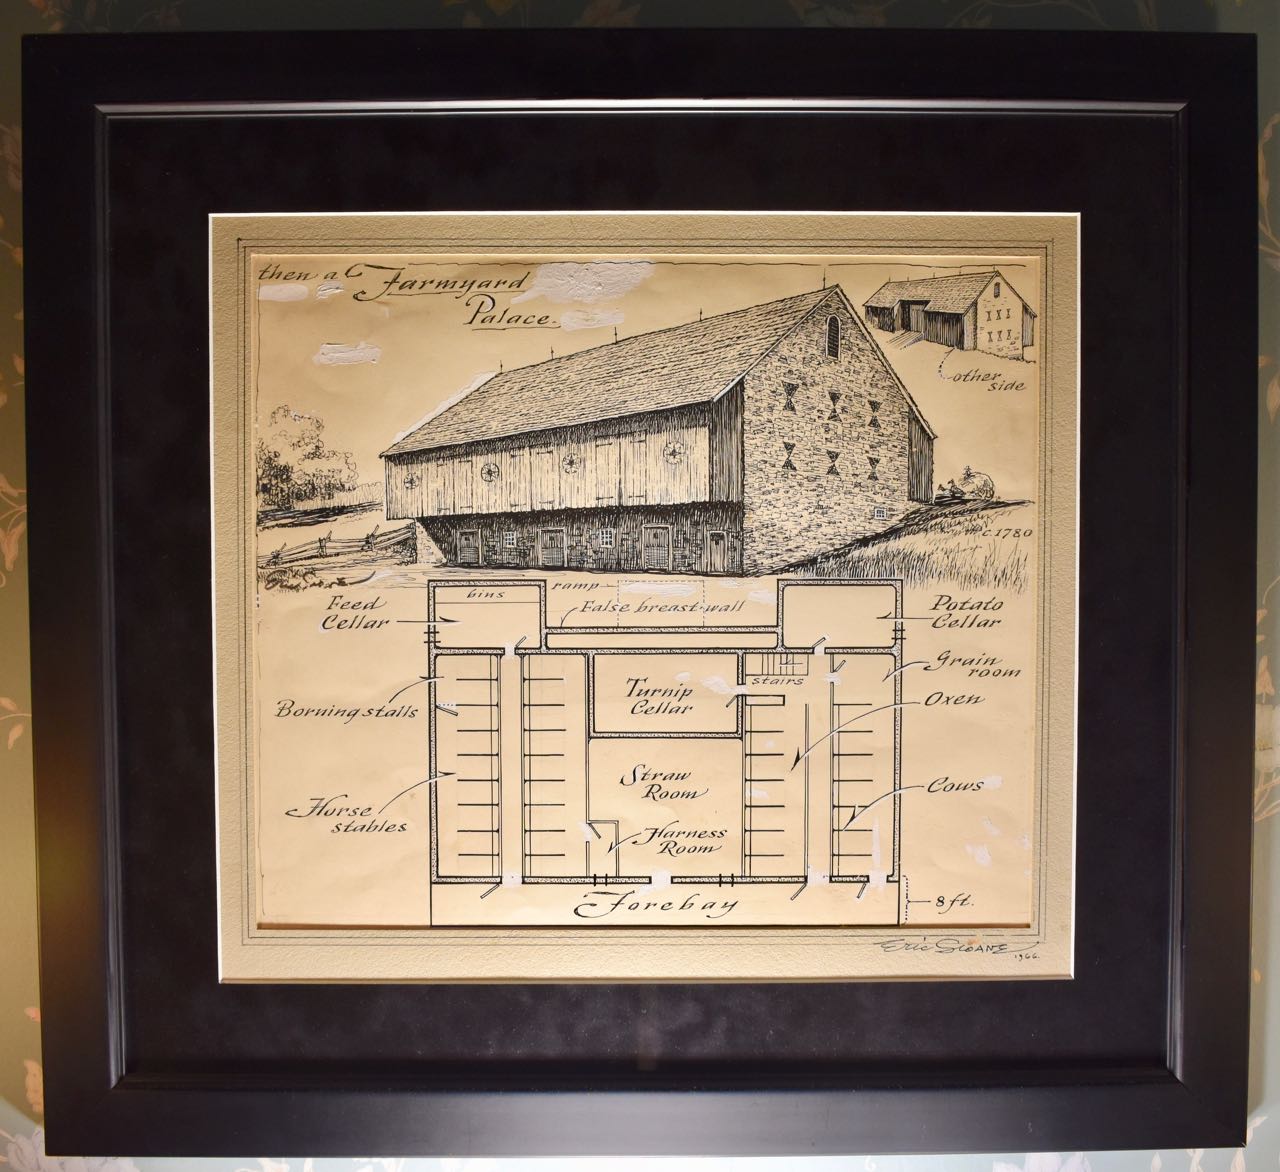 then a Farmyard
Palace.
other
side
c.1780
Feed
Cellar
bins
ramp
False breast-wall
Potato
Cellar
Grain
room
Borning stalls
Turnip
Cellar
stairs
Oxen
Horse
stables
Straw
Room
Cows
Harness
Room
Forebay
8 ft.
Eric SLOANE
1966.